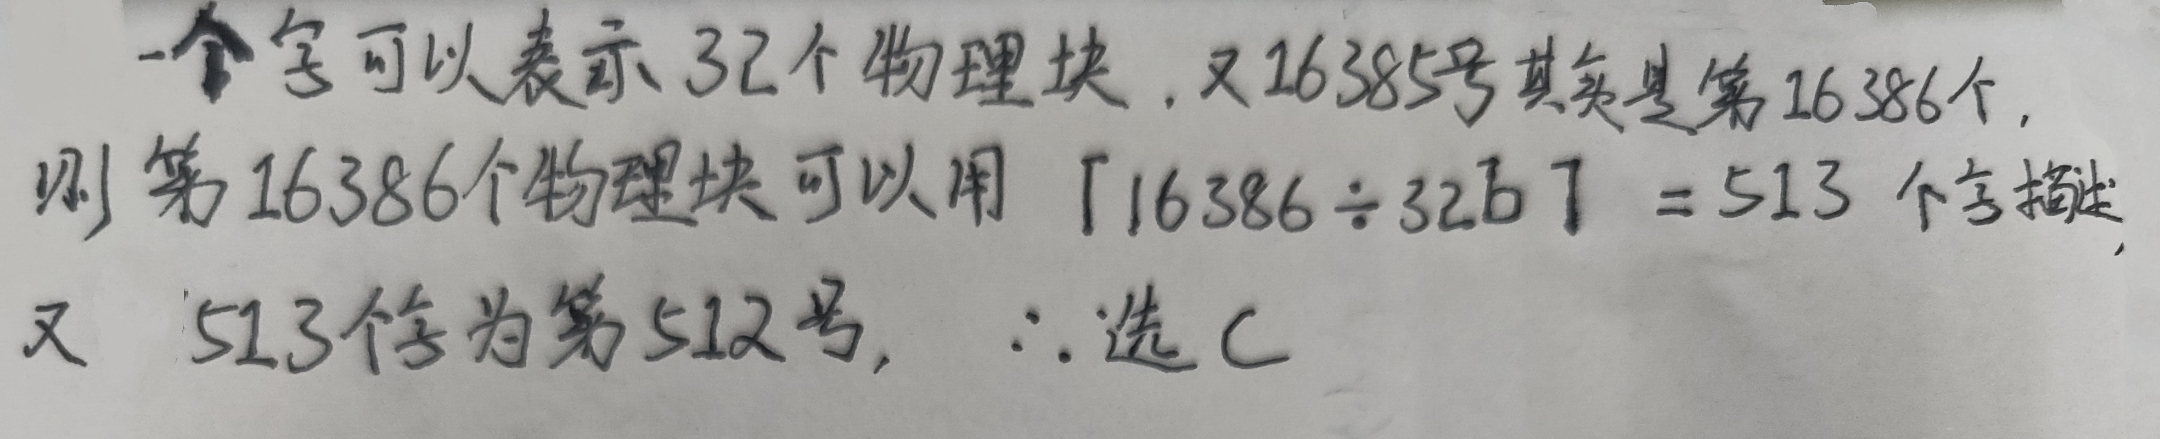 一个字可以表示32个物理块.又16385号其实是第16386个,
则第16386个物理块可以用⌈16386÷32b⌉=513个字描述,
又513个字为第512号,∴选C